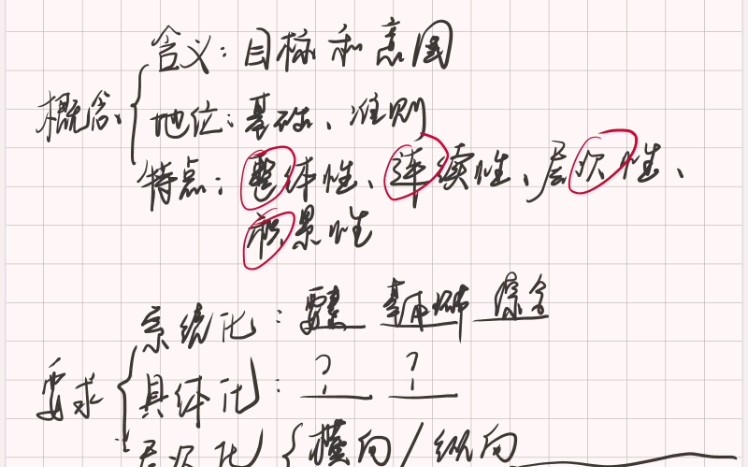 概念
含义：目标和意图
地位：基础、准则
特点：整体性、连续性、层次性、
积累性
要求
系统化：要素 综合
具体化：? ?
层次化 横向/纵向